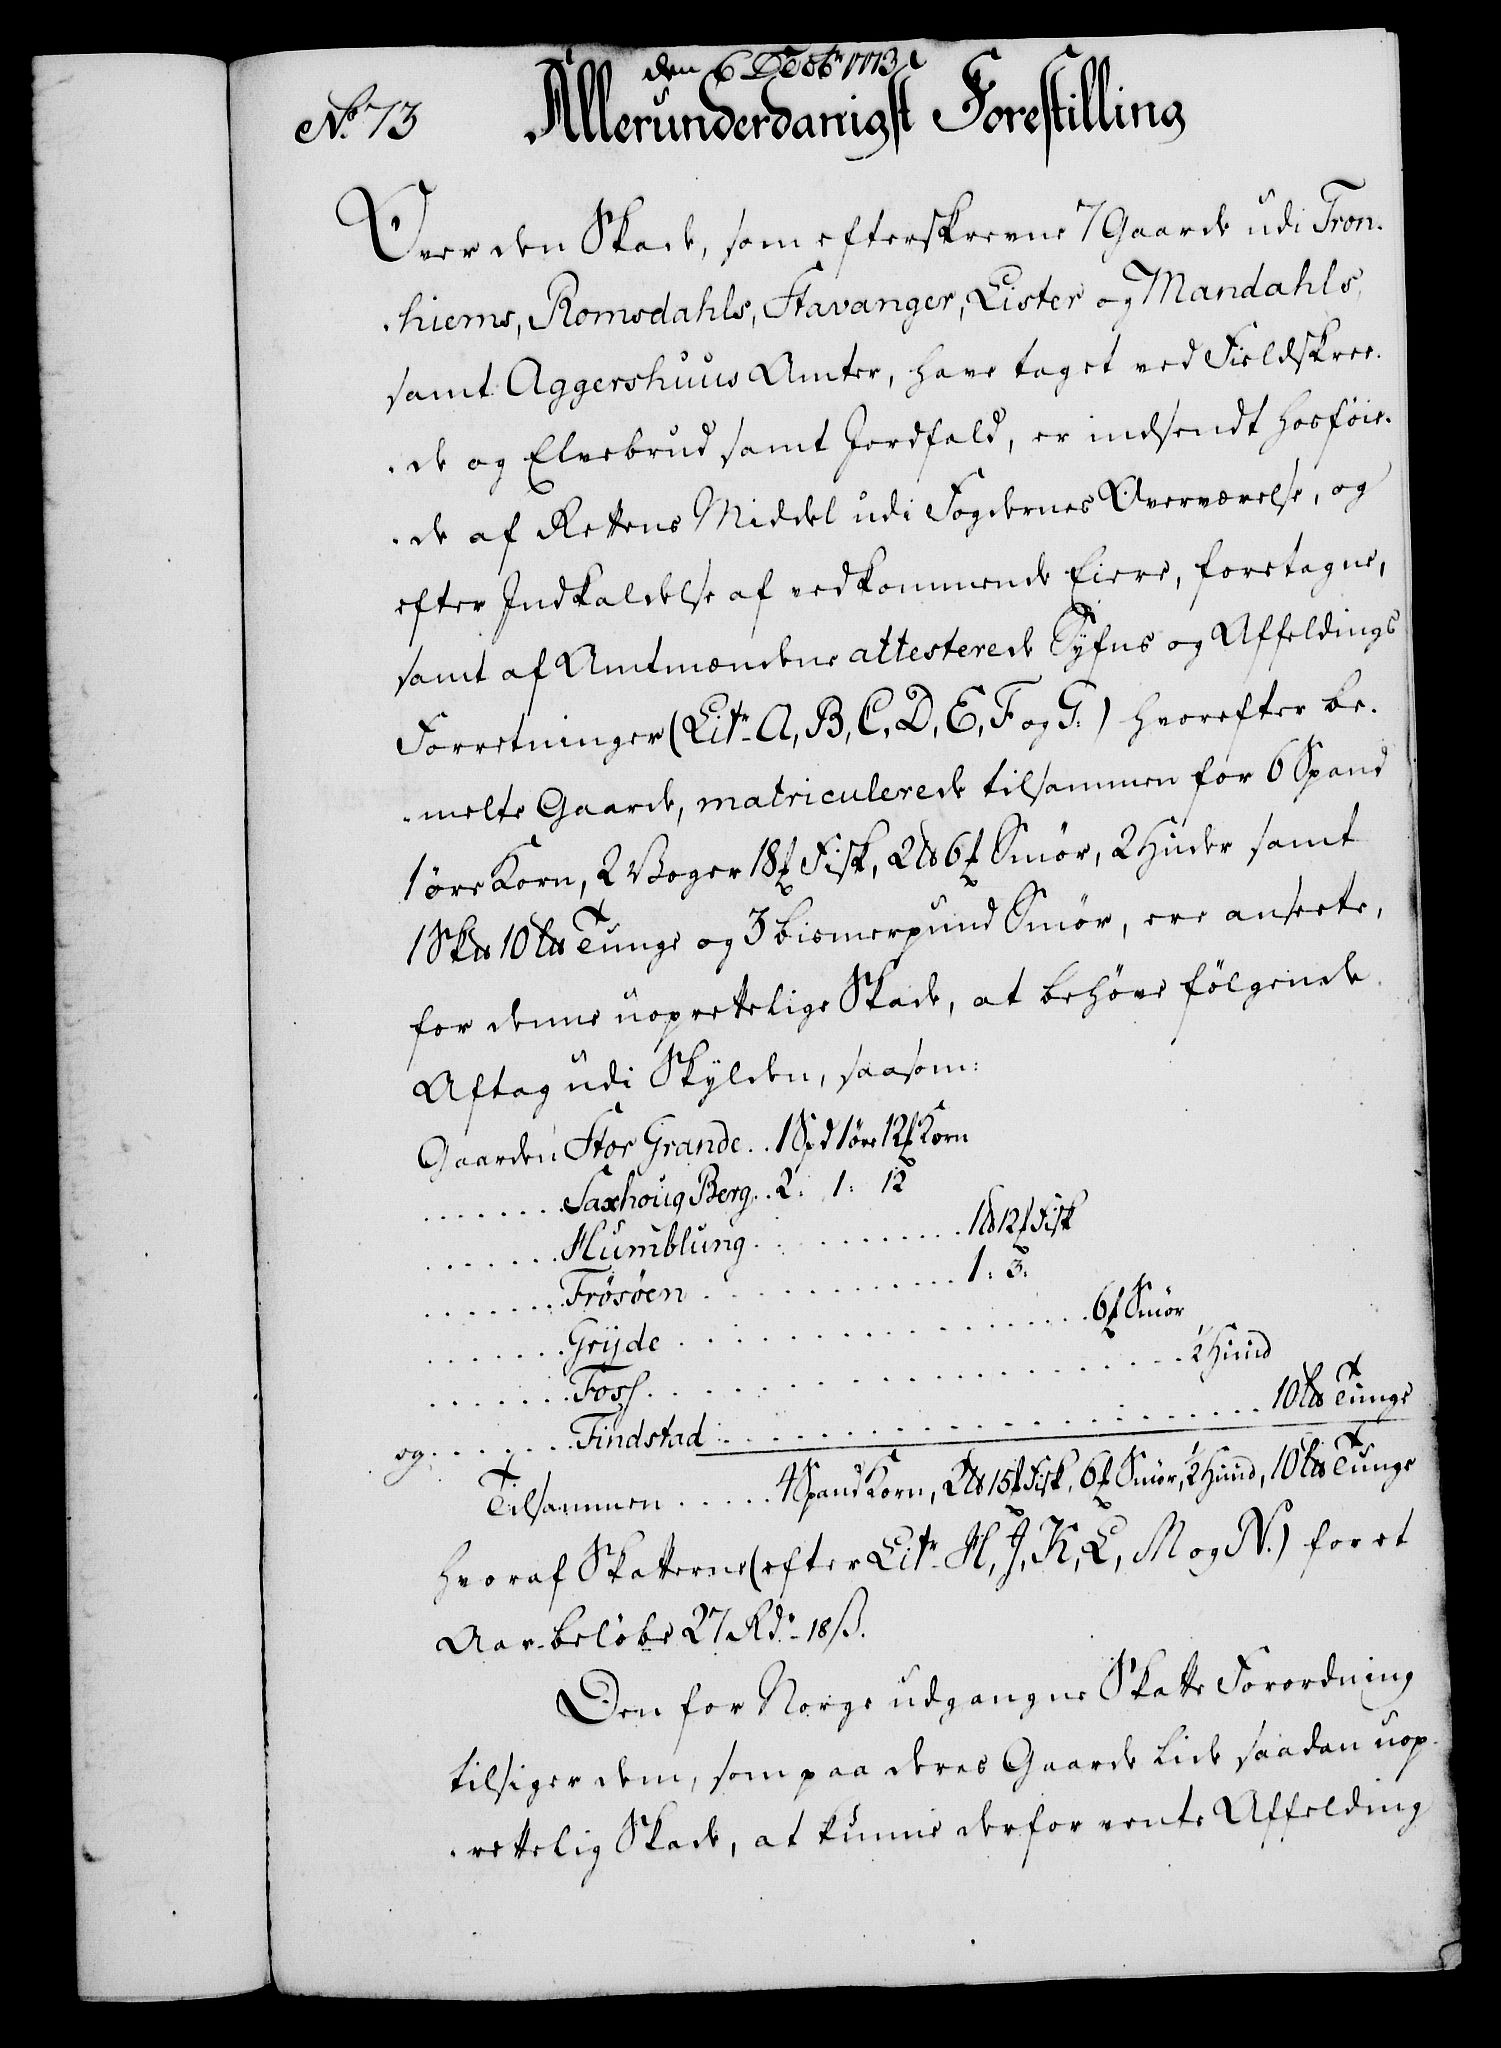 den 6 Febr 1773
No 73 Allerunderdanigst Forestilling
Over den Skade, som efterskrevne 7 Gaarde udi Tron-
-hiems, Romsdahls, Stavanger, Lister og Mandahls,
samt Aggershuus Amter, have taget ved Fieldskree-
-de og Elvebrud samt Jordfald, er indsendt hosföie-
-de af Rettens Middel udi Fogdernes Overværelse, og
efter Indkaldelse af vedkommende Eiere, foretagne,
samt af Amtmændene attesterede Syfns og Affeldings
Forretninger (Litr A, B, C, D, E, F og G:) hvorefter be-
-melte Gaarde, matriculerede tilsammen for 6 Spand
1 öre Korn, 2 Voger 18 ℔ Fisk, 2 Løb 6 ℔ Smör, 2 Huder samt
1 Sk℔ 10 L℔ Tunge og 3 bismerpund Smör, ere ansette,
for denne uoprettelige Skade, at behöve fölgende
Aftag udi Skylden, saasom:
Gaarden Stor Grande.. 1 Spd 1 öre 12 ℔ Korn
....... Saxhoug Berg.. 2: 1: 12
....... Humblung ............ 1 V 12 ℔ Fisk
....... Frösöen ............... 1: 3:
....... Grijde ........................ 6 ℔ Smör
....... Foss ............................ ½ Huud
og ....... Findstad ............................ 10 L℔ Tunge
Tilsammen ..... 4 Spand Korn, 2 V 15 ℔ Fisk, 6 ℔ Smör, ½ Huud, 10 L℔ Tunge
hvoraf Skatterne (efter Litr H, J, K, L, M og N.) for et
Aar belöbe 27 Rdr 18 ß.
Den for Norge udgangne Skatte Forordning
tilsiger dem, som paa deres Gaarde lide saadan uop-
-rettelig Skade, at kunne derfor vente Affelding